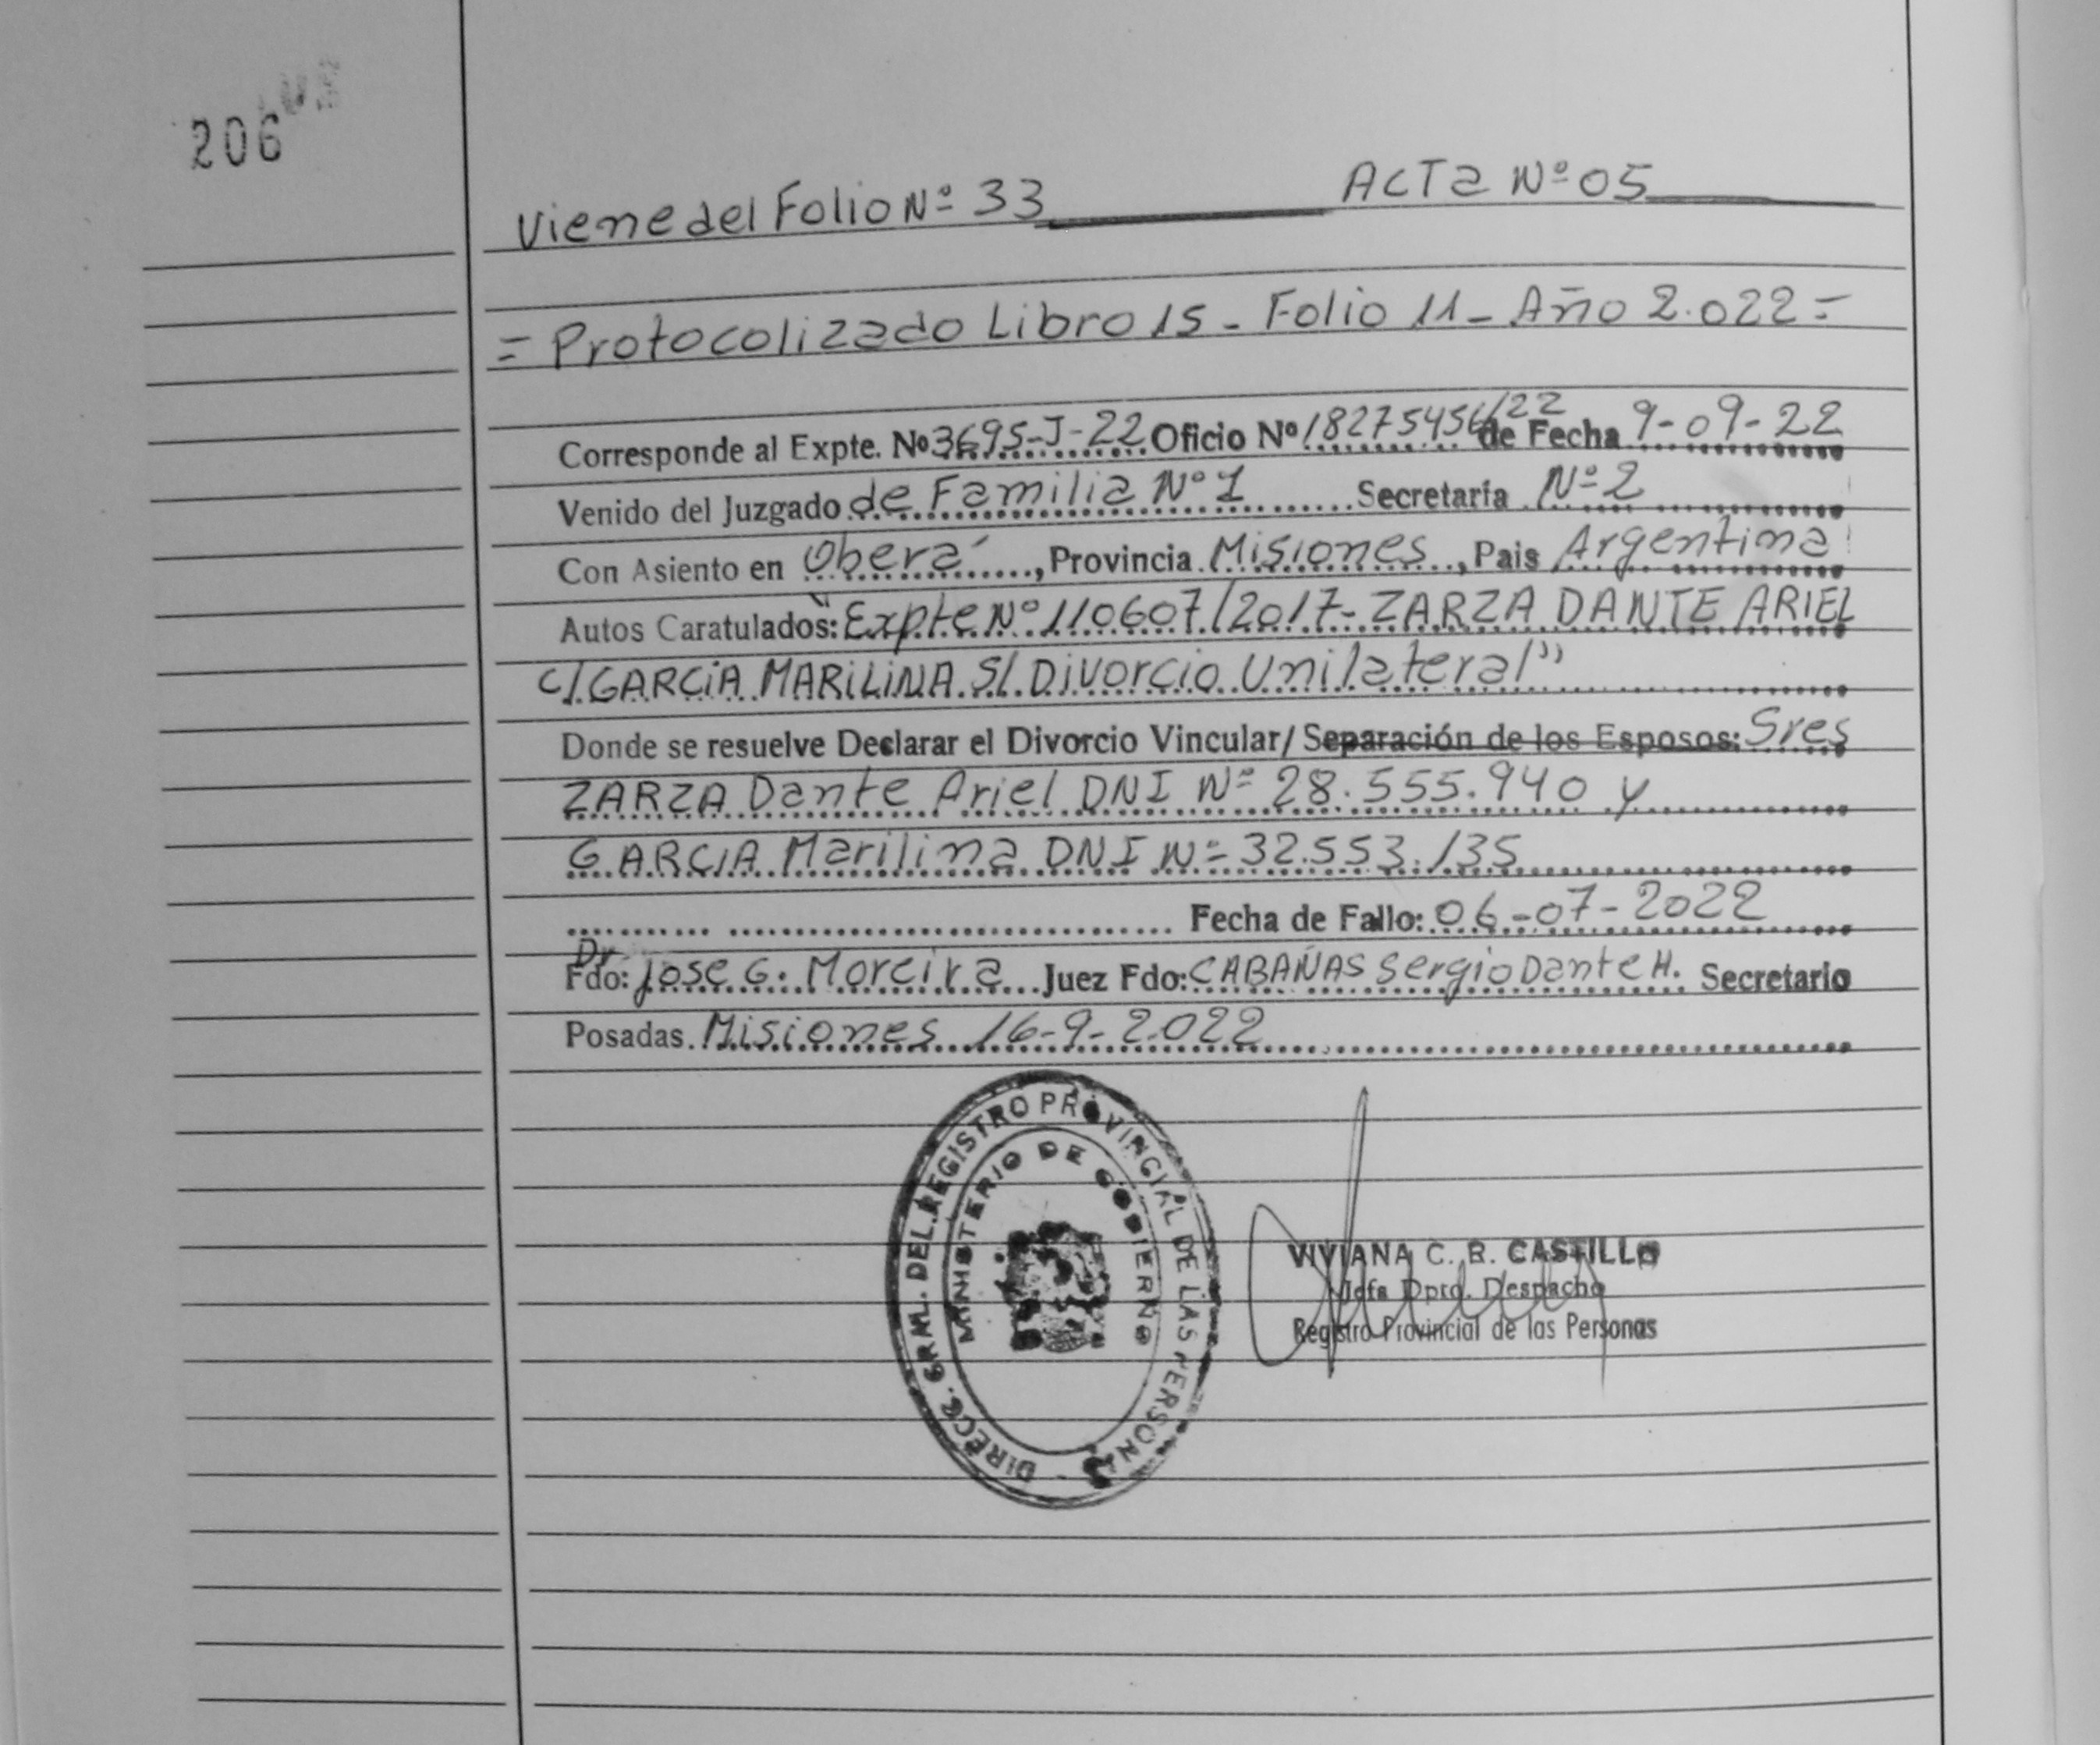 206
Viene del Folio Nº 33 Acta Nº 05
= Protocolizado Libro 15 - Folio 11 - Año 2.022 =
Corresponde al Expte. Nº 3695-J-22 Oficio Nº 18275456/22 de Fecha 9-09-22
Venido del Juzgado de Familia Nº 1 Secretaría Nº 2
Con Asiento en Oberá, Provincia Misiones, Pais Argentina
Autos Caratulados: "Expte Nº 110607/2017- ZARZA DANTE ARIEL
c/ GARCIA MARILINA S/ Divorcio Unilateral"
Donde se resuelve Declarar el Divorcio Vincular/ Separación de los Esposos: Sres
ZARZA Dante Ariel DNI Nº 28.555.940 y
GARCIA Marilina DNI Nº 32.553.135
Fecha de Fallo: 06-07-2022
Dr
Fdo: Jose G. Moreira Juez Fdo: CABAÑAS Sergio Dante H. Secretario
Posadas. Misiones 16-9-2.022
DIRECC. GRAL. DEL REGISTRO PROVINCIAL DE LAS PERSONAS
MINISTERIO DE GOBIERNO
VIVIANA C. R. CASTILLO
Jefa Dpto. Despacho
Registro Provincial de las Personas